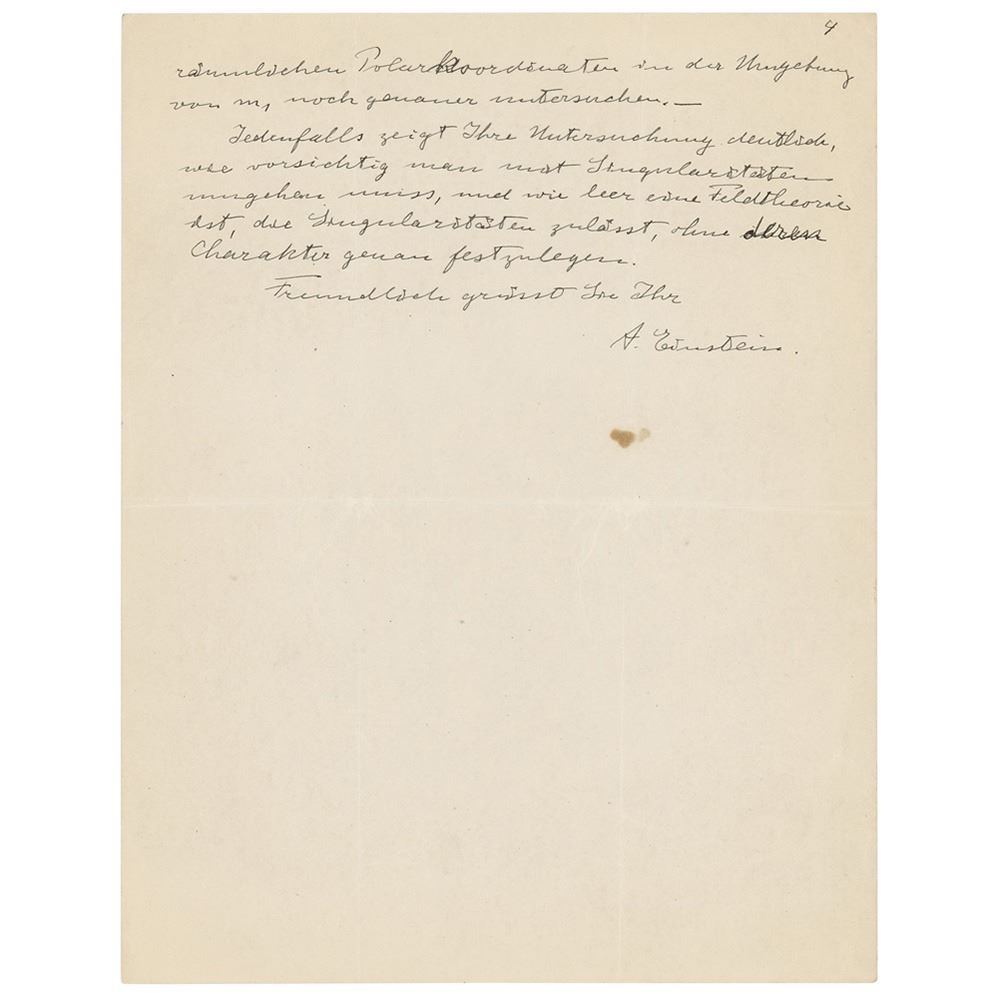 4
räumlichen Polarkoordinaten in der Umgebung
von m, noch genauer untersuchen.—
Jedenfalls zeigt Ihre Untersuchung deutlich,
wie vorsichtig man mit Singularitäten
umgehen muss, und wie leer eine Feldtheorie
ist, die Singularitäten zulässt, ohne deren
Charakter genau festzulegen.
Freundlich grüsst Sie Ihr
A. Einstein.